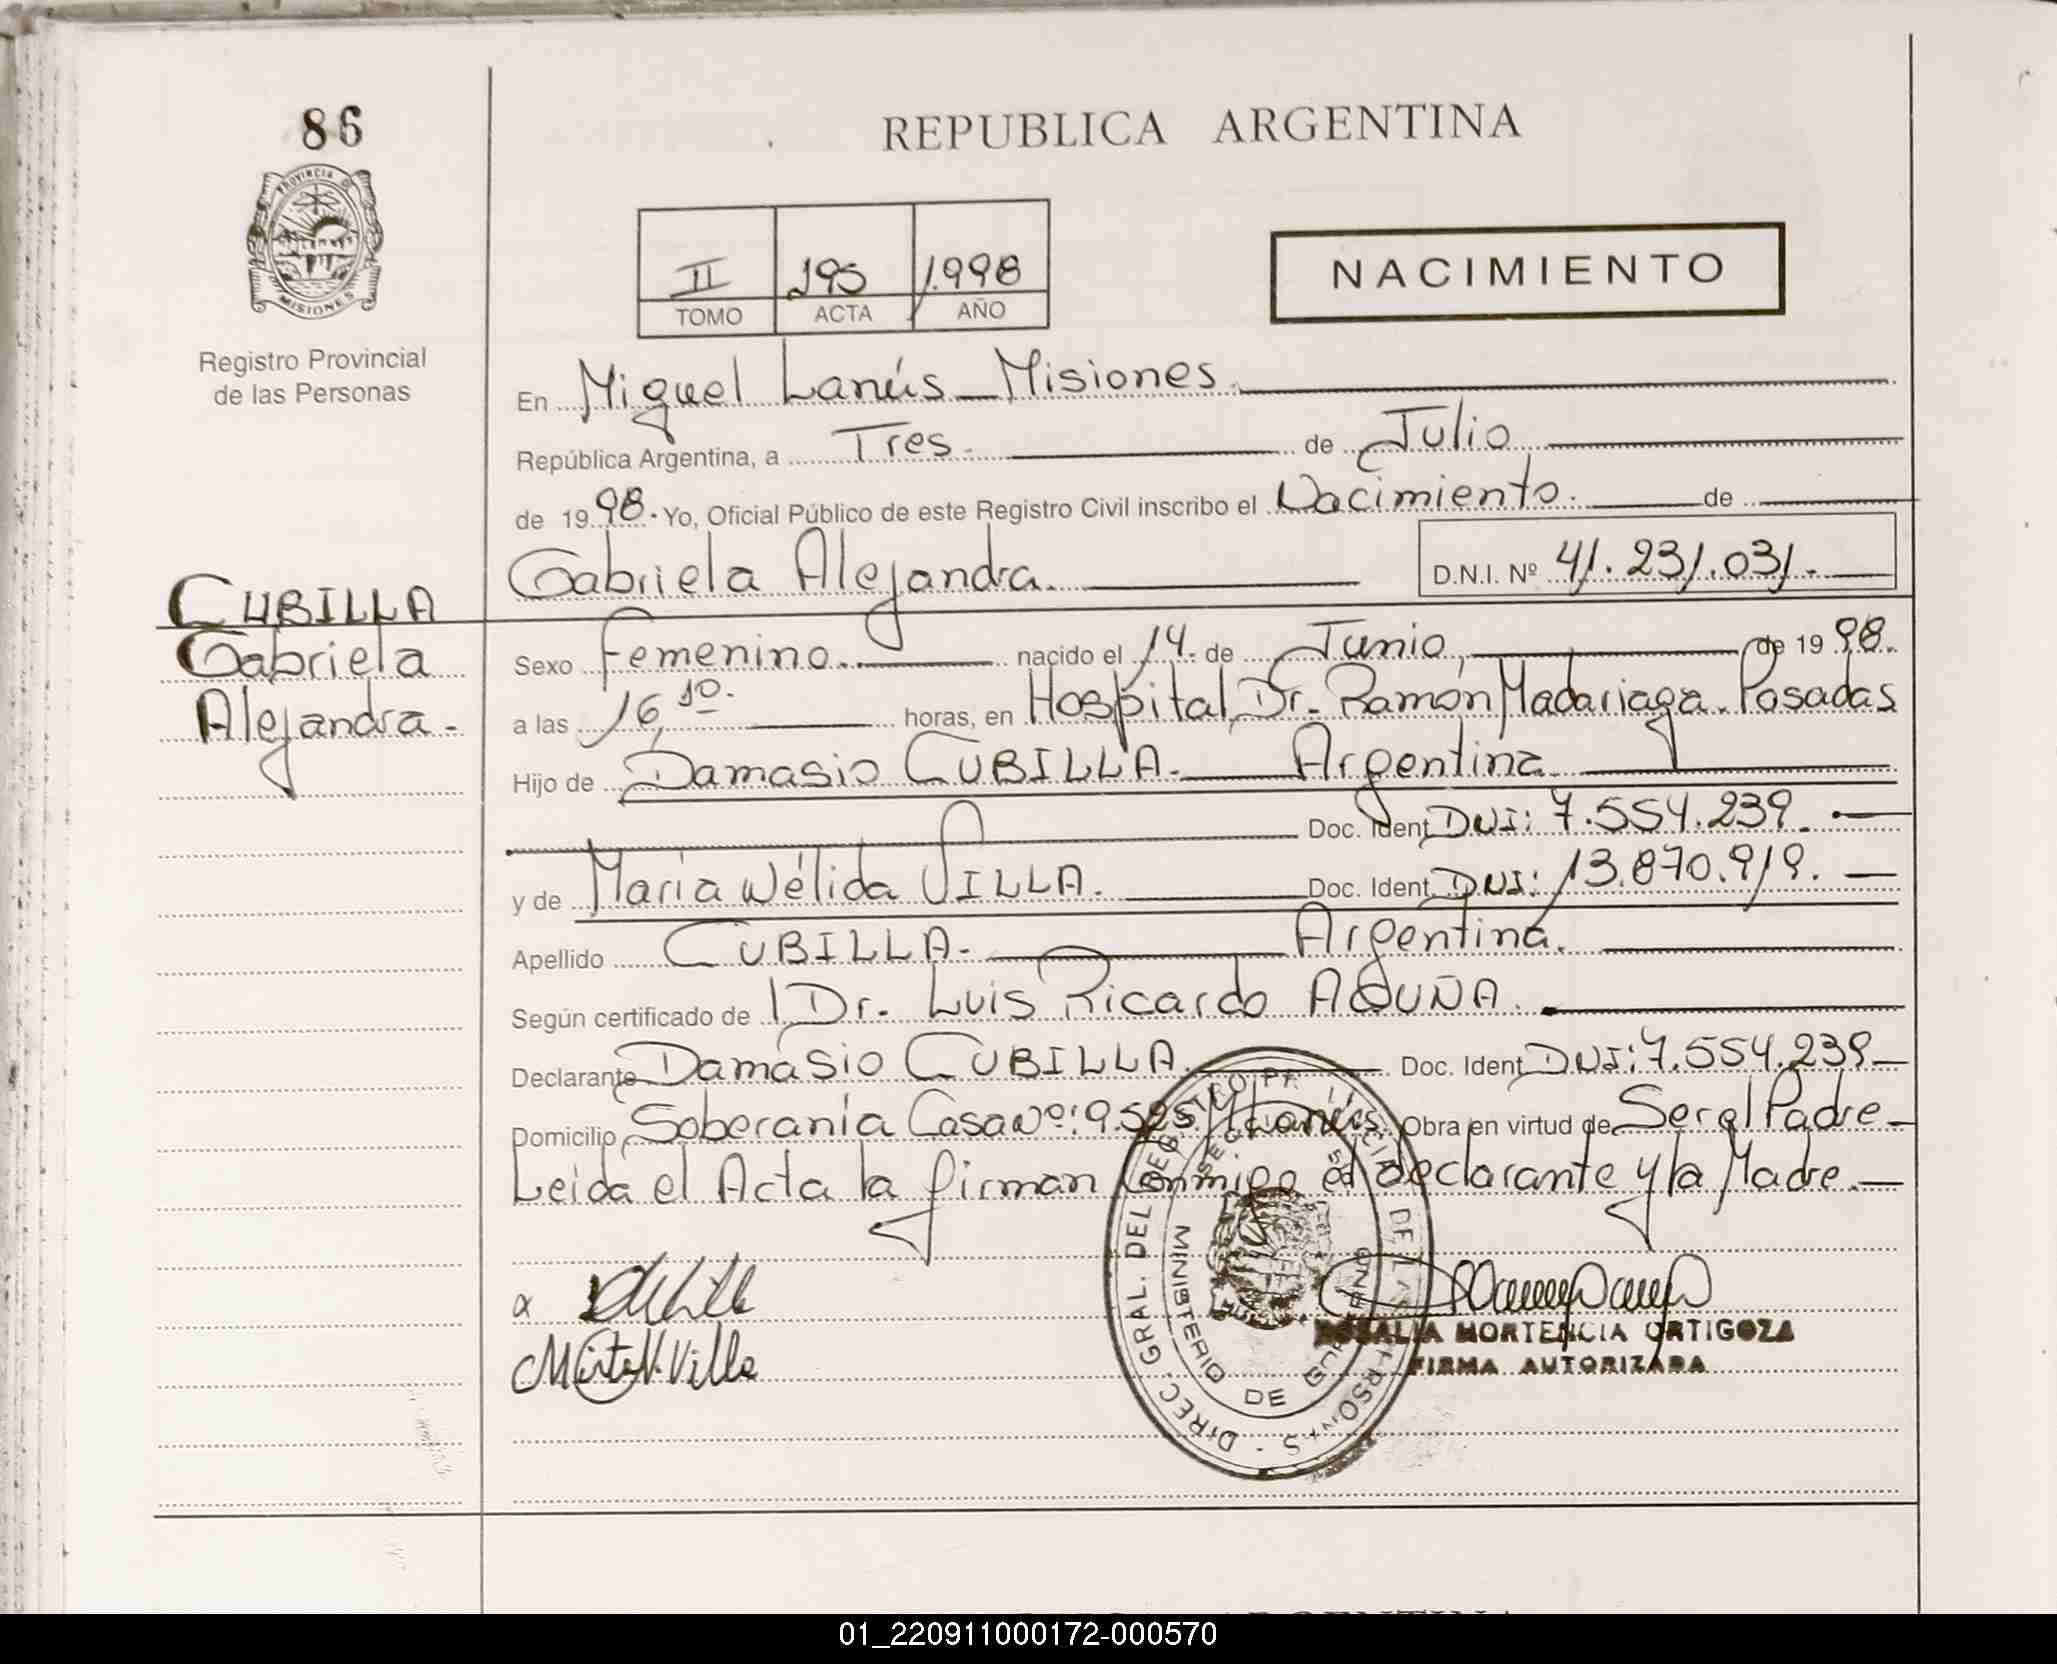 86
REPUBLICA ARGENTINA
PROVINCIA D
MISIONES
Registro Provincial
de las Personas
II 195 1.998
TOMO ACTA AÑO
NACIMIENTO
En Miguel Lanús - Misiones.
República Argentina, a Tres. de Julio
de 1998. Yo, Oficial Público de este Registro Civil inscribo el Nacimiento. de
Gabriela Alejandra. D.N.I. Nº 41.231.031.
CUBILLA
Gabriela
Alejandra.
Sexo Femenino. nacido el 14. de Junio, de 1998.
a las 16,10. horas, en Hospital Dr. Ramón Madariaga. Posadas
Hijo de Damasio CUBILLA. Argentina.
Doc. Ident. DNI: 7.554.239.
y de María Nélida VILLA. Doc. Ident. DNI: 13.870.919.
Apellido CUBILLA. Argentina.
Según certificado de Dr. Luis Ricardo ACUÑA.
Declarante Damasio CUBILLA. Doc. Ident. DNI: 7.554.239
Domicilio Soberanía Casa Nº: 9.525. M. Lanús. Obra en virtud de Ser el Padre
Leida el Acta la firman conmigo el declarante y la Madre.
Villa
ROSALIA HORTENCIA ORTIGOZA
FIRMA AUTORIZADA
DIREC. GRAL. DEL REGISTRO DE LAS PERSONAS
MINISTERIO DE
01_220911000172-000570